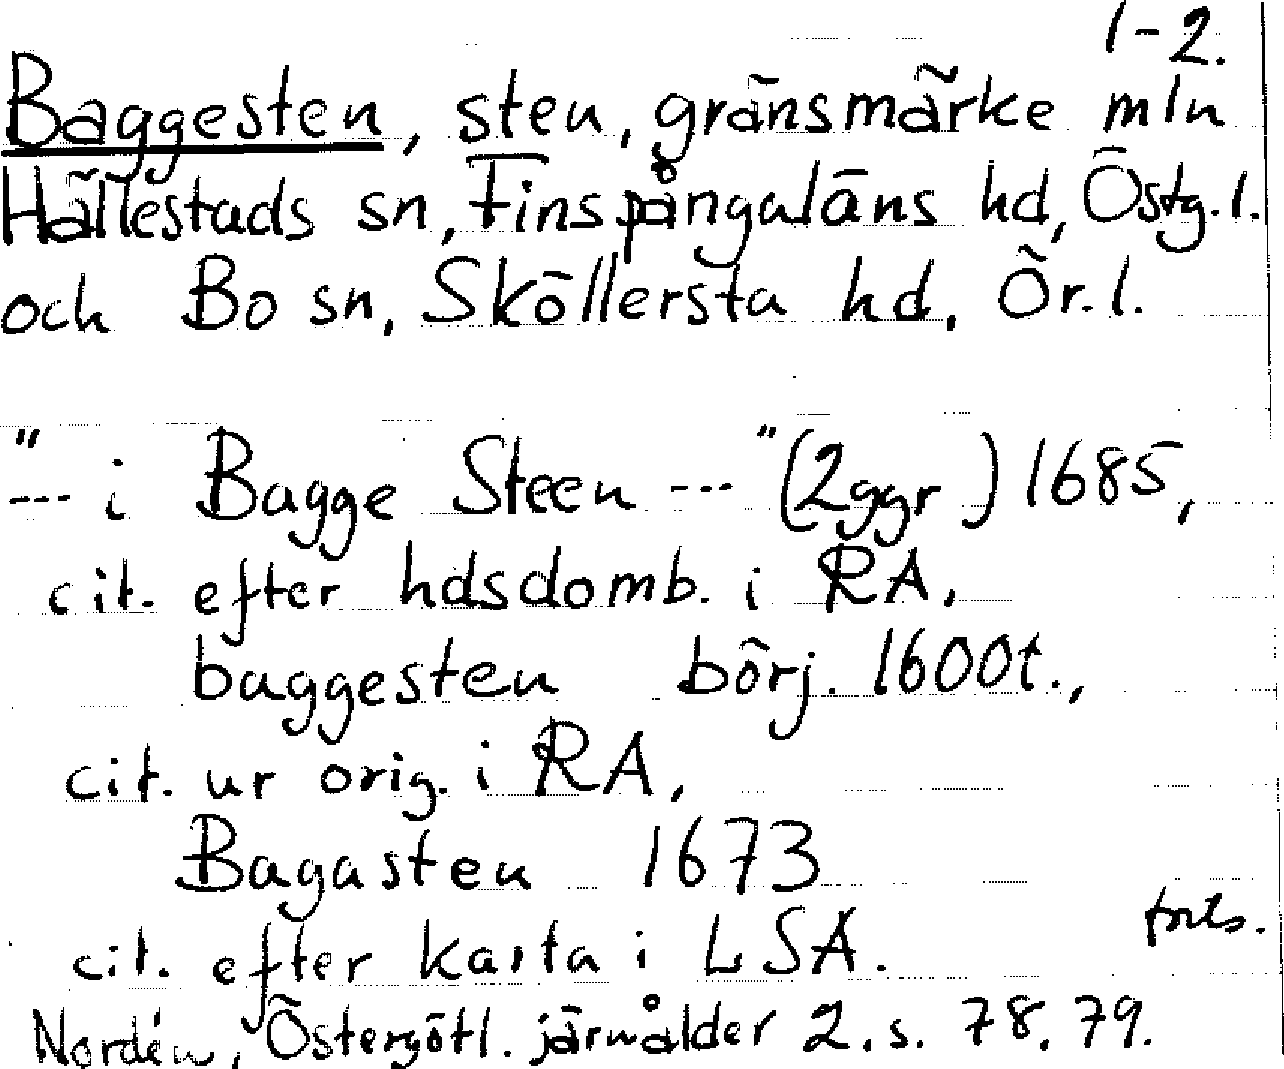 1-2.
Baggesten, sten, gränsmärke mln
Hällestads sn, Finspångaläns hd, Östg.l.
och Bo sn, Sköllersta hd, Ör.l.
"--- i Bagge Steen ---" (2ggr) 1685,
cit. efter hdsdomb. i RA,
baggesten börj. 1600t.,
cit. ur orig. i RA,
Bagasten 1673
forts.
cit. efter karta i LSA.
Nordén, Östergötl. järnålder 2. s. 78. 79.